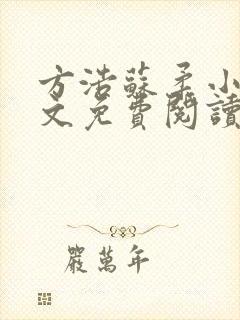 方浩蘇柔小
文免費閱讀
嚴萬年